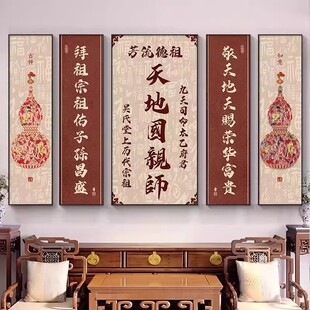 如意
敬天地天赐荣华富贵
祖德流芳
九天司命太乙府君
天地國親師
吴氏堂上历代宗祖
拜祖宗祖佑子孫昌盛
吉祥